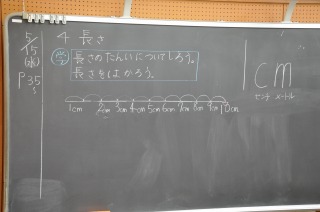 5/15
(水)
P35
4 長さ
㋕ 長さのたんいについてしろう。
長さをはかろう。
1cm 2cm 3cm 4cm 5cm 6cm 7cm 8cm 9cm 10cm
1cm
センチ メートル